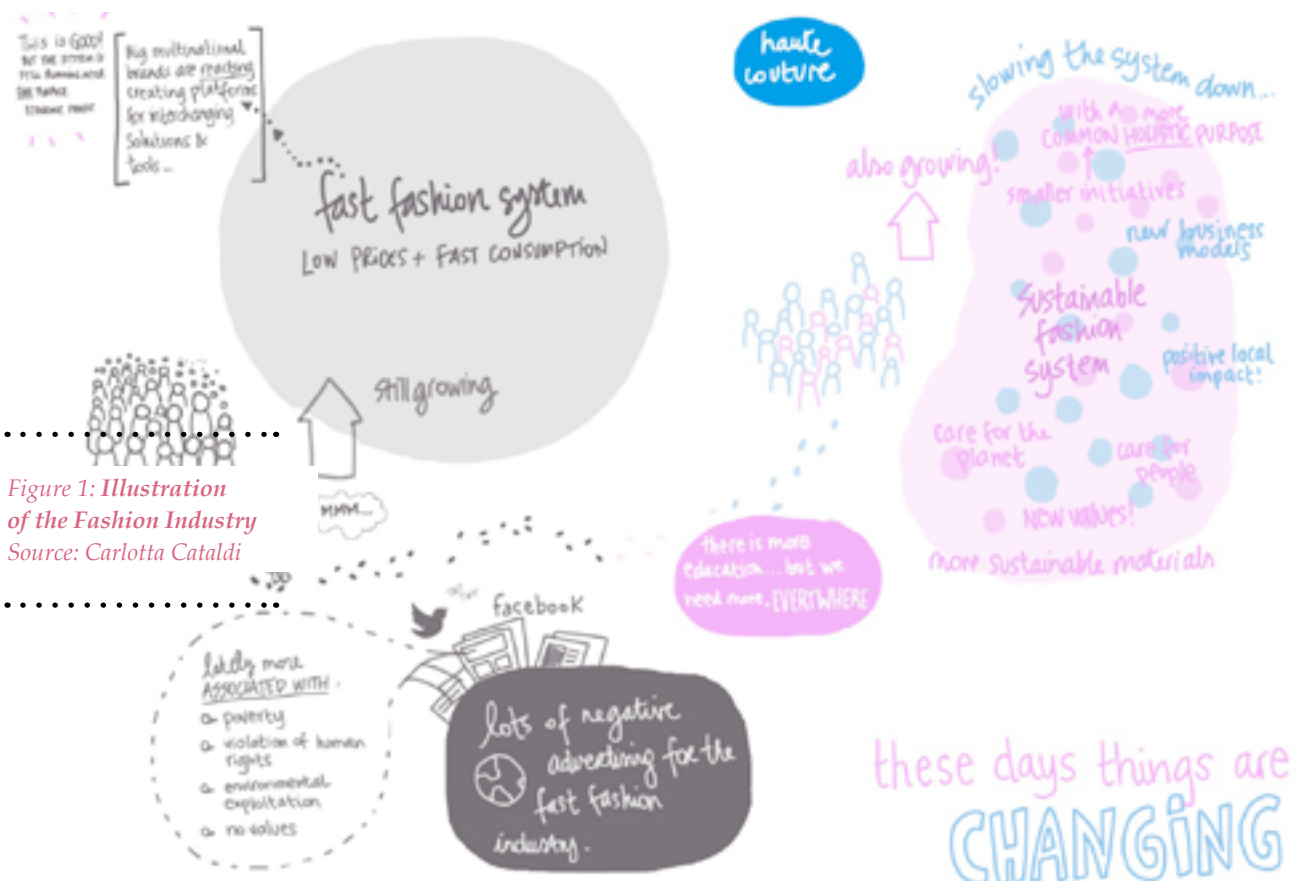 This is GOOD!
BUT THE SYSTEM IS
STILL RUNNING AFTER
ONE PURPOSE
ECONOMIC PROFIT
Big multinational
brands are reacting
creating platforms
for interchanging
Solutions &
tools...
fast fashion system
LOW PRICES + FAST CONSUMPTION
still growing
Figure 1: Illustration
of the Fashion Industry
Source: Carlotta Cataldi
MMM...
facebook
lately more
ASSOCIATED WITH.
poverty
violation of human
rights
environmental
exploitation
no values
lots of negative
advertising for the
fast fashion
industry.
haute
couture
there is more
education... but we
need more, EVERYWHERE
also growing!
slowing the system down...
with a more
COMMON HOLISTIC PURPOSE
smaller initiatives
new business
models
Sustainable
fashion
system
positive local
impact!
care for the
planet
care for
people
NEW values!
more sustainable materials
these days things are
CHANGING